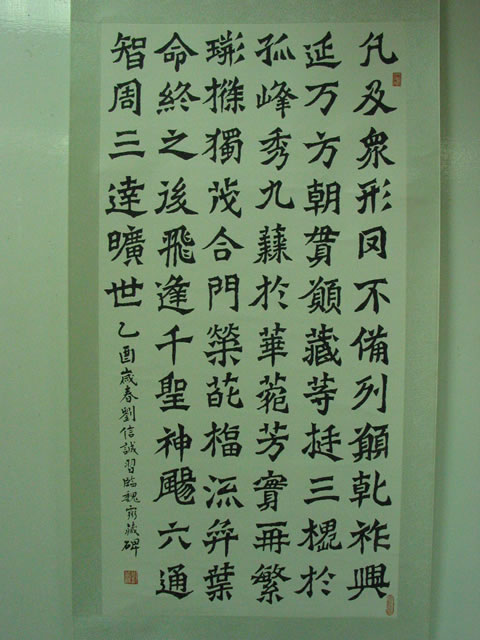 凡及衆形罔不備列願乹祚興
延万方朝貫願藏等挺三槐於
孤峰秀九蕀於華菀芳實再繁
獨茂合門榮葩福流弈葉
命終之後飛逢千聖神颺六通
智周三達曠世乙酉歲春劉信誠習臨魏靈藏碑